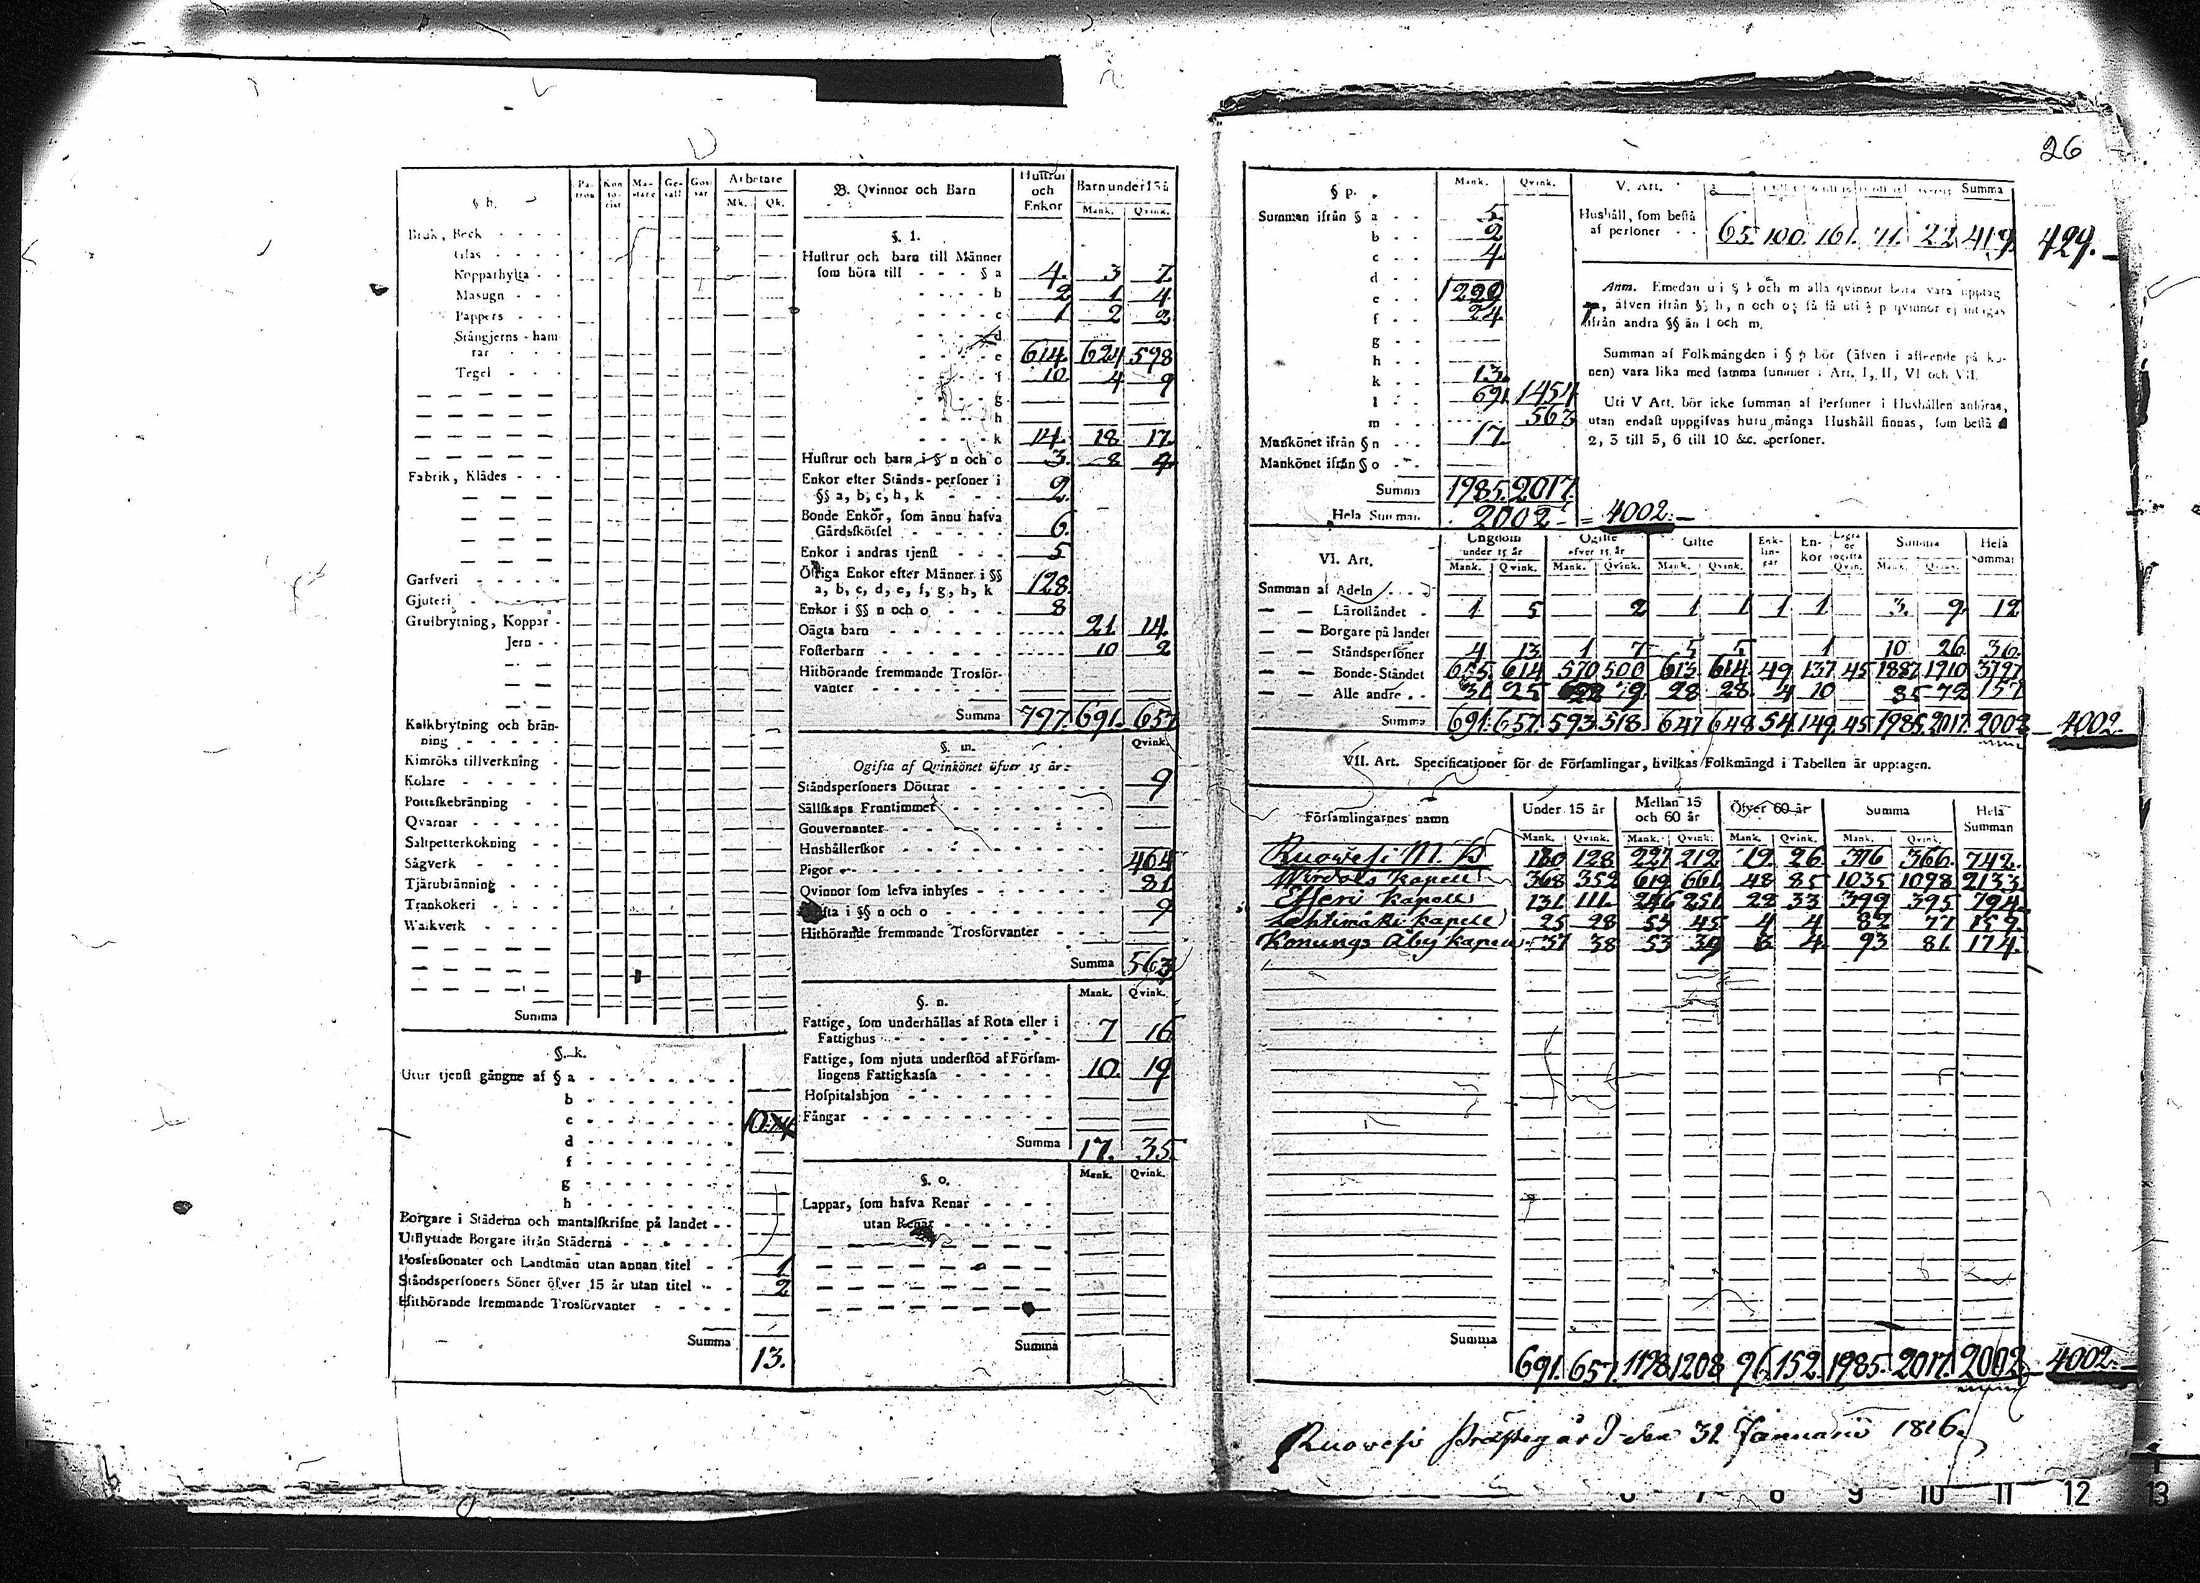 26
§ h.
Pa-tron
Kon-to-rist
Mä-stare
Ge-säll
Gos-sar
Arbetare
Mk.
Qk.
Bruk, Beck
Glas
Kopparhytta
Masugn
Pappers
Stångjerns-ham
rar
Tegel
Fabrik, Klädes
Garfveri
Gjuteri
Grufbrytning, Koppar
Jern
Kalkbrytning och brän-
ning
Kimröks tillverkning
Kolare
Pottaskebränning
Qvarnar
Saltpetterkokning
Sågverk
Tjärubränning
Trankokeri
Walkverk
Summa
§. k.
Utur tjenst gångne af § a
b
c 10
d
f
g
h
Borgare i Städerna och mantalskrifne på landet
Utflyttade Borgare ifrån Städerna
Possessionater och Landtmän utan annan titel 1
Ståndspersoners Söner öfver 15 år utan titel 2
Hithörande fremmande Trosförvanter
Summa 13.
B. Qvinnor och Barn
Hustrur och Enkor
Barn under 15 å
Mank. Qvink.
§. l.
Hustrur och barn till Männer
som höra till § a 4. 3 7.
b 2 1 4
c 1 2 2
d
e 614. 624 598
f 10. 4 9
g
h
k 14. 18 17.
Hustrur och barn i § n och o 3. 8 4
Enkor efter Stånds-personer i
§§ a, b, c, h, k 2.
Bonde Enkor, som ännu hafva
Gårdsskötsel 6.
Enkor i andras tjenst 5
Öfriga Enkor efter Männer i §§
a, b, c, d, e, f, g, h, k 128.
Enkor i §§ n och o 8
Oägta barn 21 14.
Fosterbarn 10 2
Hithörande fremmande Trosför-
vanter
Summa 797. 691. 657
§. m. Qvink.
Ogifta af Qvinkönet öfver 15 år:
Ståndspersoners Döttrar 9
Sällskaps Fruntimmer
Gouvernanter
Hushållerskor
Pigor 464
Qvinnor som lefva inhyses 81
Ogifta i §§ n och o 9
Hithörande fremmande Trosförvanter
Summa 563
§. n. Mank. Qvink.
Fattige, som underhållas af Rota eller i
Fattighus 7 16
Fattige, som njuta understöd af Försam-
lingens Fattigkassa 10. 19
Hospitalshjon
Fångar
Summa 17. 35.
§. o. Mank. Qvink.
Lappar, som hafva Renar
utan Renar
Summa
§ p. Mank. Qvink.
Summan ifrån § a 5
b 2
c 4
d
e 1229
f 24
g
h
k 13.
l 691 1454
m 563
Mankönet ifrån § n 17.
Mankönet ifrån § o
Summa 1985. 2017.
Hela Summan 2002 = 4002.
V. Art. Summa
Hushåll, som bestå
af personer 65. 100. 161. 71. 22 419. 429.
Anm. Emedan uti § l och m alla qvinnor böra vara upptag
, äfven ifrån §§ h, n och o; så få uti § p qvinnor ej intagas
ifrån andra §§ än l och m.
Summan af Folkmängden i § p bör (äfven i afseende på kö-
nen) vara lika med samma summor i Art. I, II, VI och VII.
Uti V Art. bör icke summan af Personer i Hushållen anföras,
utan endast uppgifvas huru många Hushåll finnas, som bestå a
2, 3 till 5, 6 till 10 &c. personer.
VI. Art.
Ungdom under 15 år
Ogifte öfver 15 år
Gifte
Enk-lin-gar
En-kor
Lägra de ogifta Qvin.
Summa
Hela Summan
Mank. Qvink. Mank. Qvink. Mank. Qvink. Mank. Qvink.
Summan af Adeln
Läroståndet 1 5 2 1 1 1 1 3. 9. 12
Borgare på landet
Ståndspersoner 4 13. 1 7 5 5. 1 10 26. 36.
Bonde-Ståndet 655. 614 570 500 613. 614 49 137 45 1887 1910 3797
Alle andre 31 25 9 28 28. 4 10 85 72 157
Summa 691. 657. 593. 518. 647 648 54. 149. 45 1985. 2017. 2002 4002.
VII. Art. Specificationer för de Församlingar, hvilkas Folkmängd i Tabellen är upptagen.
Församlingarnes namn
Under 15 år
Mellan 15 och 60 år
Öfver 60 år
Summa
Hela Summan
Mank. Qvink. Mank. Qvink. Mank. Qvink. Mank. Qvink.
Ruowesi M. K 130 128 227 212 19 26. 376 366. 742.
Wirdois Kapell 368 352 619 661 48 85 1035 1098 2133
Etseri Kapell 131. 111. 246 251 28 33 399 395 794.
Lehtimäki kapell 25 28 53 45 4 4 82 77 159.
Konungs Åby kapell 37 38 53 39 4 93 81. 174.
Summa 691. 657. 1198 1208 96 152. 1985. 2017. 2002 4002.
Ruowesi Prästegård den 31 Januarii 1816.
9 10 11 12 13